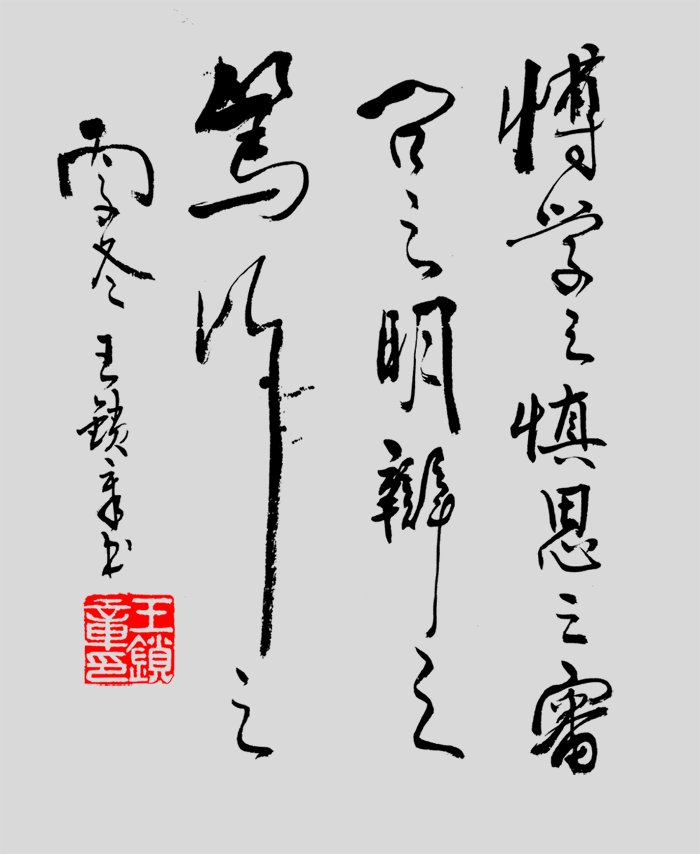 博学之慎思之審
问之明辨之
篤行之
丙子冬 王鎖章书
王鎖章印